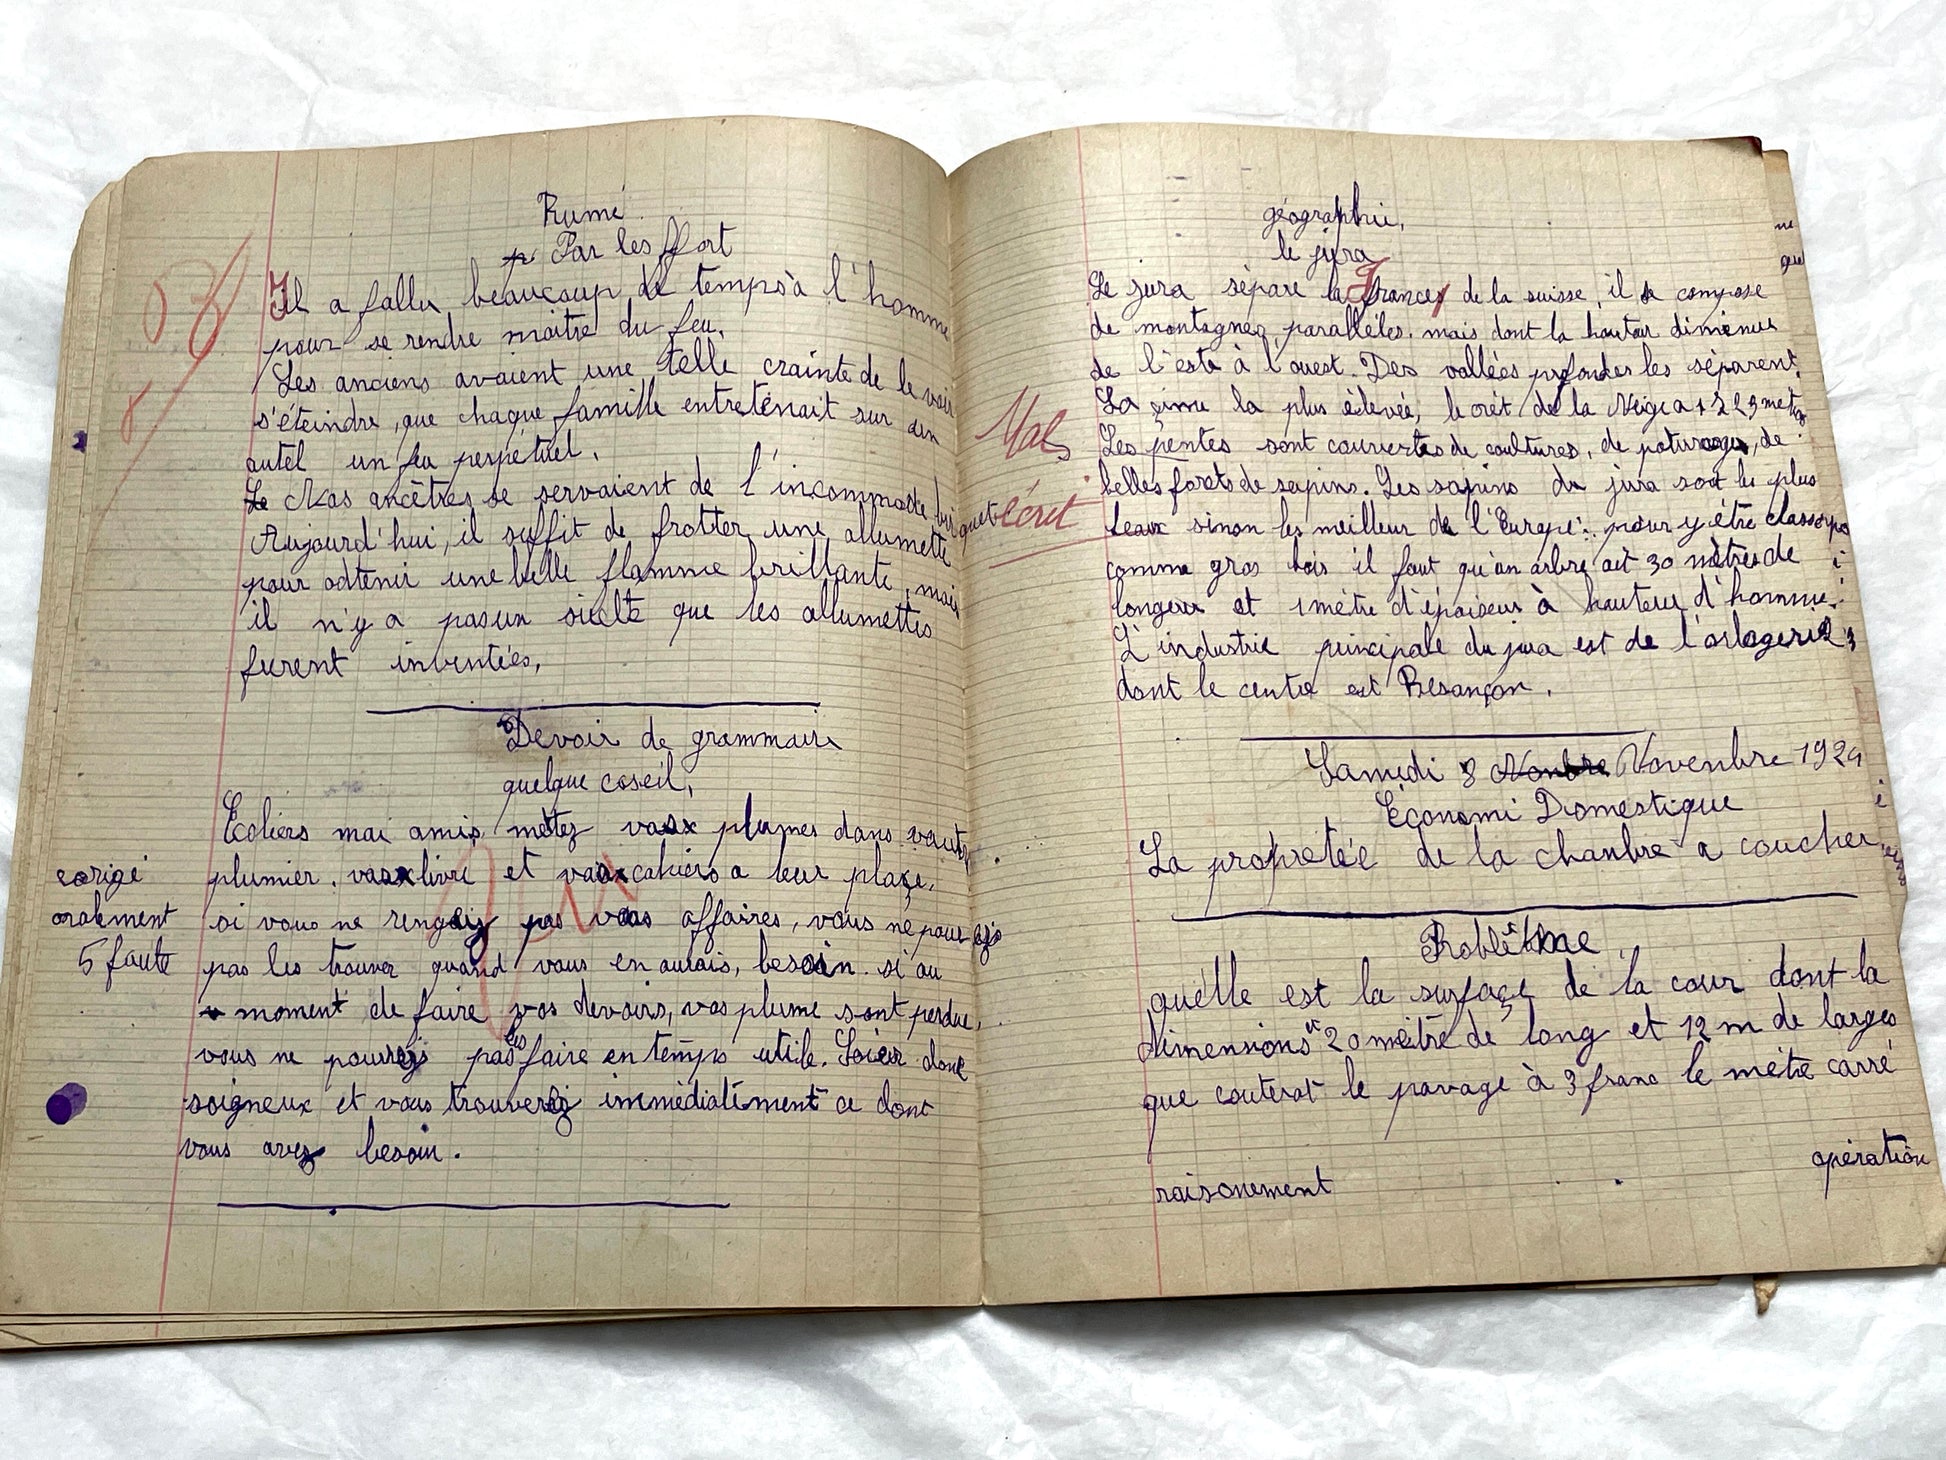 Rumé
Par les ffort
Il a fallu beaucoup de temps à l'homme
pour se rendre maitre du feu.
Les anciens avaient une telle crainte de le voir
s'éteindre, que chaque famille entretenait sur un
autel un feu perpétuel.
Le Nos ancêtres se servaient de l'incommode briquet
Aujourd'hui, il suffit de frotter une allumette
pour obtenir une belle flamme brillante, mais
il n'y a pas un siècle que les allumettes
furent inventées,
Devoir de grammaire
quelque coseil,
Ecoliers mai amis, mettez vaux plumes dans vautre
plumier. vaux livre et vaux cahiers a leur plaçe.
si vous ne rengez pas vos affaires, vous ne pourez
pas les trouver quand vous en aurais, besoin. si au
moment de faire vos devoirs, vos plume sont perdue,
vous ne pourrez pas les faire en temps utile. Soier donc
soigneux et vous trouverez immédiatiment ce dont
vous avez besoin.
corigé
oralement
5 faute
géographie,
le jura
Le jura sépare la France de la suisse, il se compose
de montagnes, parallèles. mais dont la hauteur diminue
de l'este à l'ouest. Des vallées profondes les séparent.
La çime la plus élevée, le crêt de la Neige a 1723 mèt
Les pentes sont couvertes de coultures, de paturages, de
belles forets de sapins. Les sapins du jura sont les plus
beaux sinon les meilleur de l'Europe. pour y être classé
comme gros bois il faut qu'un arbre ait 30 mètres de
longeur et 1 mètre d'épaiseur à hauteur d'homme.
L'industrie principale du jura est de l'orlogerie
dont le centre est Besançon.
Mal
écrit
Samedi 8 Nonbre Novenbre 1924
Économi Domestique
La propretée de la chanbre a coucher
Problème
quelle est la surfaçe de la cour dont la
dimensions 20 mètre de long et 12 m de larges
que couterat le pavage à 3 franc le mètre carré
opération
raisonement